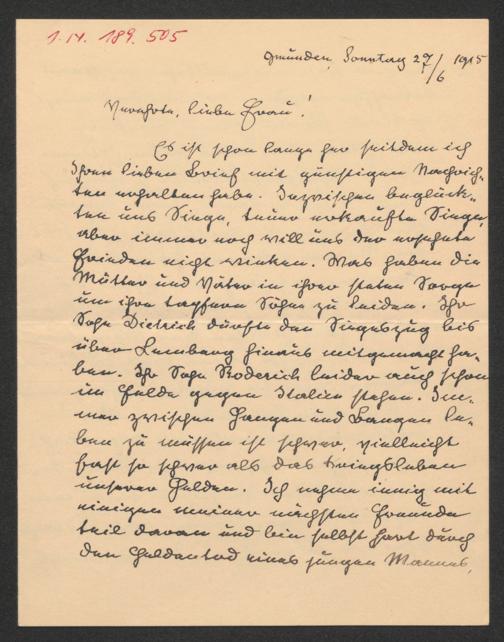 I.N. 189.505
Gmünden, Sonntag 27/6 1915
Verehrte, liebe Frau!
Es ist schon lange her seitdem ich
Ihren lieben Brief mit günstigen Nachrich-
ten erhalten habe. Inzwischen beglück-
ten uns Siege, teuer erkaufte Siege,
aber immer noch will uns der ersehnte
Frieden nicht winken. Was haben die
Mütter und Väter in ihrer steten Sorge
um ihre tapfern Söhne zu leiden. Ihr
Sohn Dietrich dürfte den Siegeszug bis
über Lemberg hinaus mitgemacht ha-
ben. Ihr Sohn Roderich leider auch schon
im Felde gegen Italien stehen. Im-
mer zwischen Hangen und Bangen le-
ben zu müssen ist schwer, vielleicht
fast so schwer als das Kriegsleben
unserer Helden. Ich nehme innig mit
einigen meiner nächsten Freunde
teil daran und bin selbst hart durch
den Heldentod eines jungen Mannes,